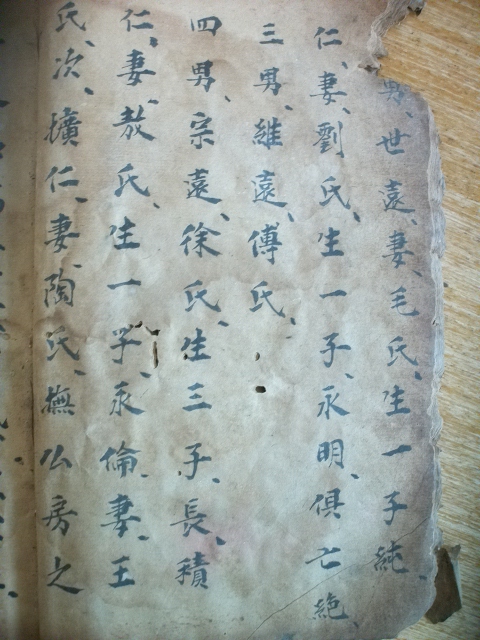 男、世遠、妻、毛氏、生一子純、
仁、妻、劉氏、生一子、永明、俱亡絶、
三男、維遠、傅氏、
四男、宗遠、徐氏、生三子、長、積
仁、妻、哉氏、生一子、永倫、妻、王
氏、次、擴仁、妻、陶氏、撫公房之